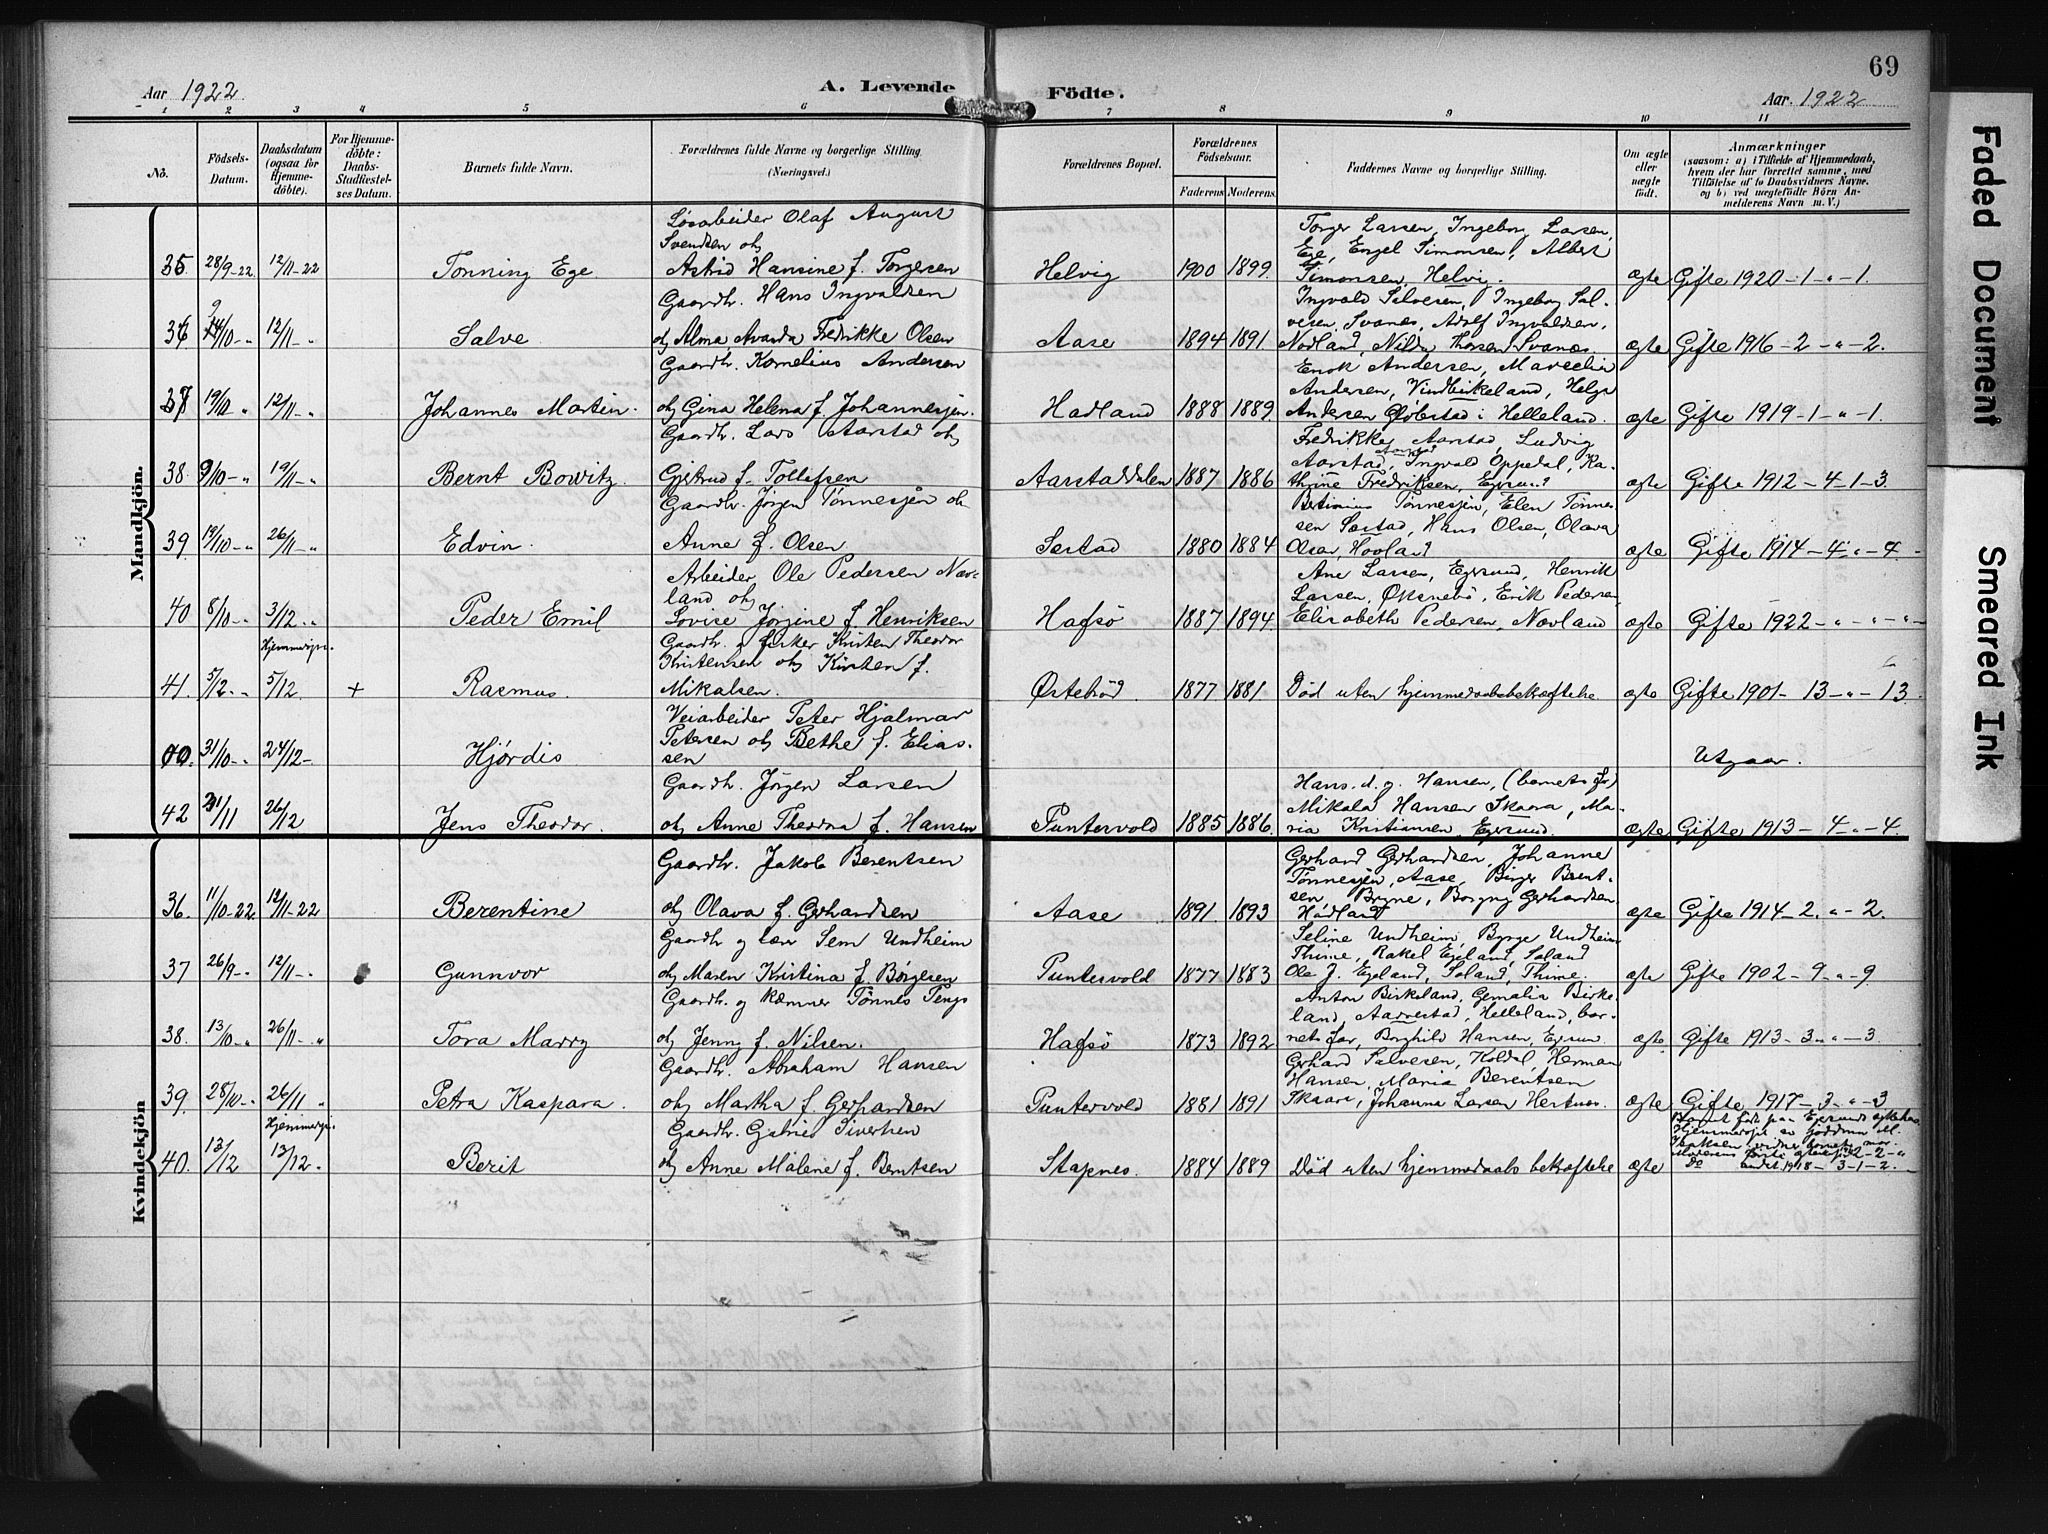 69
Aar 1922 A. Levende Födte. Aar. 1922
1 2 3 4 5 6 7 8 9 10 11
No. Födsels-Datum. Daabsdatum (ogsaa for Hjemmedöbte). For Hjemmedöbte: Daabs-Stadfæstelses Datum. Barnets fulde Navn. Forældrenes fulde Navne og borgerlige Stilling. (Næringsvei.) Forældrenes Bopæl. Forældrenes Födselsaar. Faderens. Moderens. Faddernes Navne og borgerlige Stilling. Om ægte eller uægte födt. Anmærkninger (saasom: a) i Tilfælde af Hjemmedaab, hvem der har forrettet samme, med Tilföielse af to Daabsvidners Navne, og b) ved uægtefödte Börn Anmelderens Navn m. V.)
Mandkjön.
35 28/9-22 12/11-22 Tonning Ege Løsarbeider Olaf August Svendsen og Astrid Hansine f. Torgersen Helvig 1900 1899 Torger Larsen, Ingeborg Larsen, Ege, Engel Simonsen, Albert Simonsen, Helvig. ægte Gifte 1920-1-"-1.
36 /10-" 12/11-" Salve Gaardbr. Hans Ingvaldsen og Alma Avanda Fredrikke Olsen Aase 1894 1891 Ingvald Salvesen, Ingeborg Salvesen, Svanes, Adolf Ingvaldsen, Nodland, Nilda Thorsen Svanes. ægte Gifte 1916-2-"-2.
37 19/10 " 12/11-" Johannes Martin. Gaardbr. Kornelius Andersen og Gina Helena f. Johannesjen. Hadland 1888 1889 Enok Andersen, Marcelia Andersen, Vindbirkeland, Helge Andersen Glöbstad i Helleland. ægte Gifte 1919-1-"-1.
38. 9/10-" 19/11-" Bernt Bowitz Gaardbr. Lars Aarstad og Gjertrud f. Tollefsen Aarstaddalen 1887 1886 Fredrikke Aarstad, Ludvig Aarstad, Ingvald Oppedal, Kathrine Fredriksen, Egersund ægte Gifte 1912-4-1-3.
39. 19/10-" 26/11-" Edvin. Gaardbr. Jørgen Tønnesjen og Anne f. Olsen Sæstad 1880 1884 Bertinius Tønnesjen, Elen Tønnessen Sæstad, Hans Olsen, Olava Olsen, Hovland ægte Gifte 1914-4-"-4-
40 8/10-" 3/12." Peder Emil Arbeider Ole Pedersen Nævland og Lovise Jørgine f. Henriksen Hafsö 1887 1894 Ane Larsen, Egersund, Henrik Larsen, Øksnebö, Erik Pedersen, Elisabeth Pedersen, Nævland ægte Gifte 1922-"-"-"-
41. 5/12-" Hjemmedøpt. 5/12 + Rasmus. Gaardbr. og fisker Kristen Theodor Kristensen og Kirsten f. Mikalsen. Østebröd 1877 1881 Död uten hjemmedaabsbekræftelse ægte Gifte 1901-13-"-13.
00. 31/10-" 24/12- Hjördis Veiarbeider Peter Hjalmar Petersen og Bethe f. Eliassen Utgaar.
42 21/11 26/12 Jens Theodor. Gaardbr. Jörgen Larsen og Anne Theodora f. Hansen Puntervold 1885 1886 Hans d. y. Hansen, (barnets far) Mikala Hansen Skaara, Maria Kristiansen, Egersund. ægte Gifte 1913-4-"-4.
Kvindekjön
36. 11/10-22 12/11-22 Berentine Gaardbr. Jakob Berentsen og Olava f. Gerhardsen Aase 1891 1893 Gerhard Gerhardsen, Johanne Tønnesjen, Aase, Birger Berentsen, Bryne, Borgny Gerhardsen Hådland ægte Gifte 1914-2.-"-2.
37 26/9-" 12/11-" Gunnvor Gaardbr og lærer Sem Undheim og Maren Kristina f. Børgesen Puntervold 1877 1883 Seline Undheim, Byrge Undheim Thime, Rakel Egeland, Soland Ole J. Egeland, Soland, Thime. ægte Gifte 1902-9-"-9.
38. 13/10-" 26/11-" Tora Marry Gaardbr. og kæmner Tønnes Tengs og Jenny f. Nilsen. Hafsö 1873 1892 Anton Birkeland, Gemalia Birkeland, Aarrestad, Helleland, barnets far, Borghild Hansen, Egersun. ægte Gifte 1913-3-"-3.
39. 28/10-" 26/11 " Petra Kaspara. Gaardbr. Abraham Hansen og Martha f. Gerhardsen Puntervold 1881 1891 Gerhard Salvesen, Koldal, Herman Hansen, Maria Berentsen Skaara, Johanna Larsen Hestnes. ægte Gifte 1917-3-"-3
40. 13/12 Hjemmedøpt. 13/12. Berit Gaardbr. Gabriel Sivertsen og Anne Målene f. Berntsen Stapnes. 1884 1889 Död uten hjemmedaabs bekræftelse ægte Barnet født paa Egersunds sykehus. Hjemmedøpt av jordmor M. Isaksen, vidne barnets mor. Moderens første egteskap -2-" Do andet 1918-3-1-2.
Faded Document
Smeared Ink